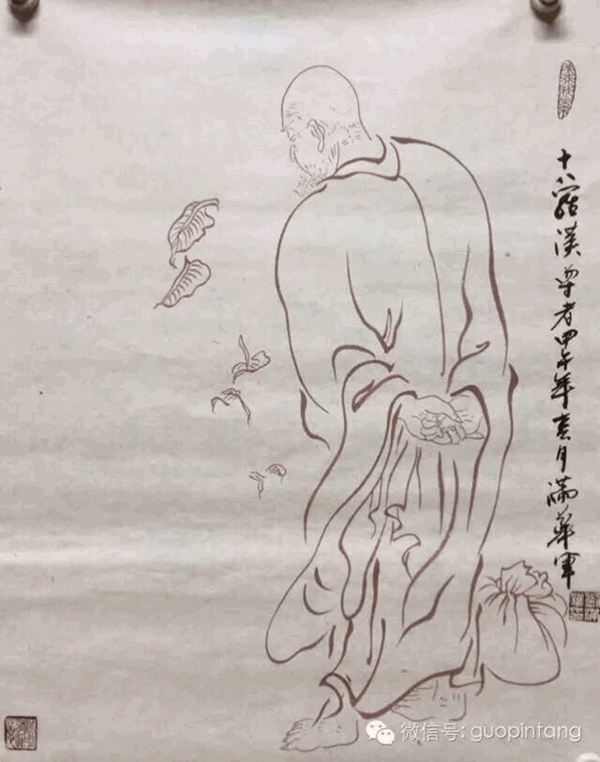 十八羅漢尊者甲午年春月滿華軍
微信号: guopintang